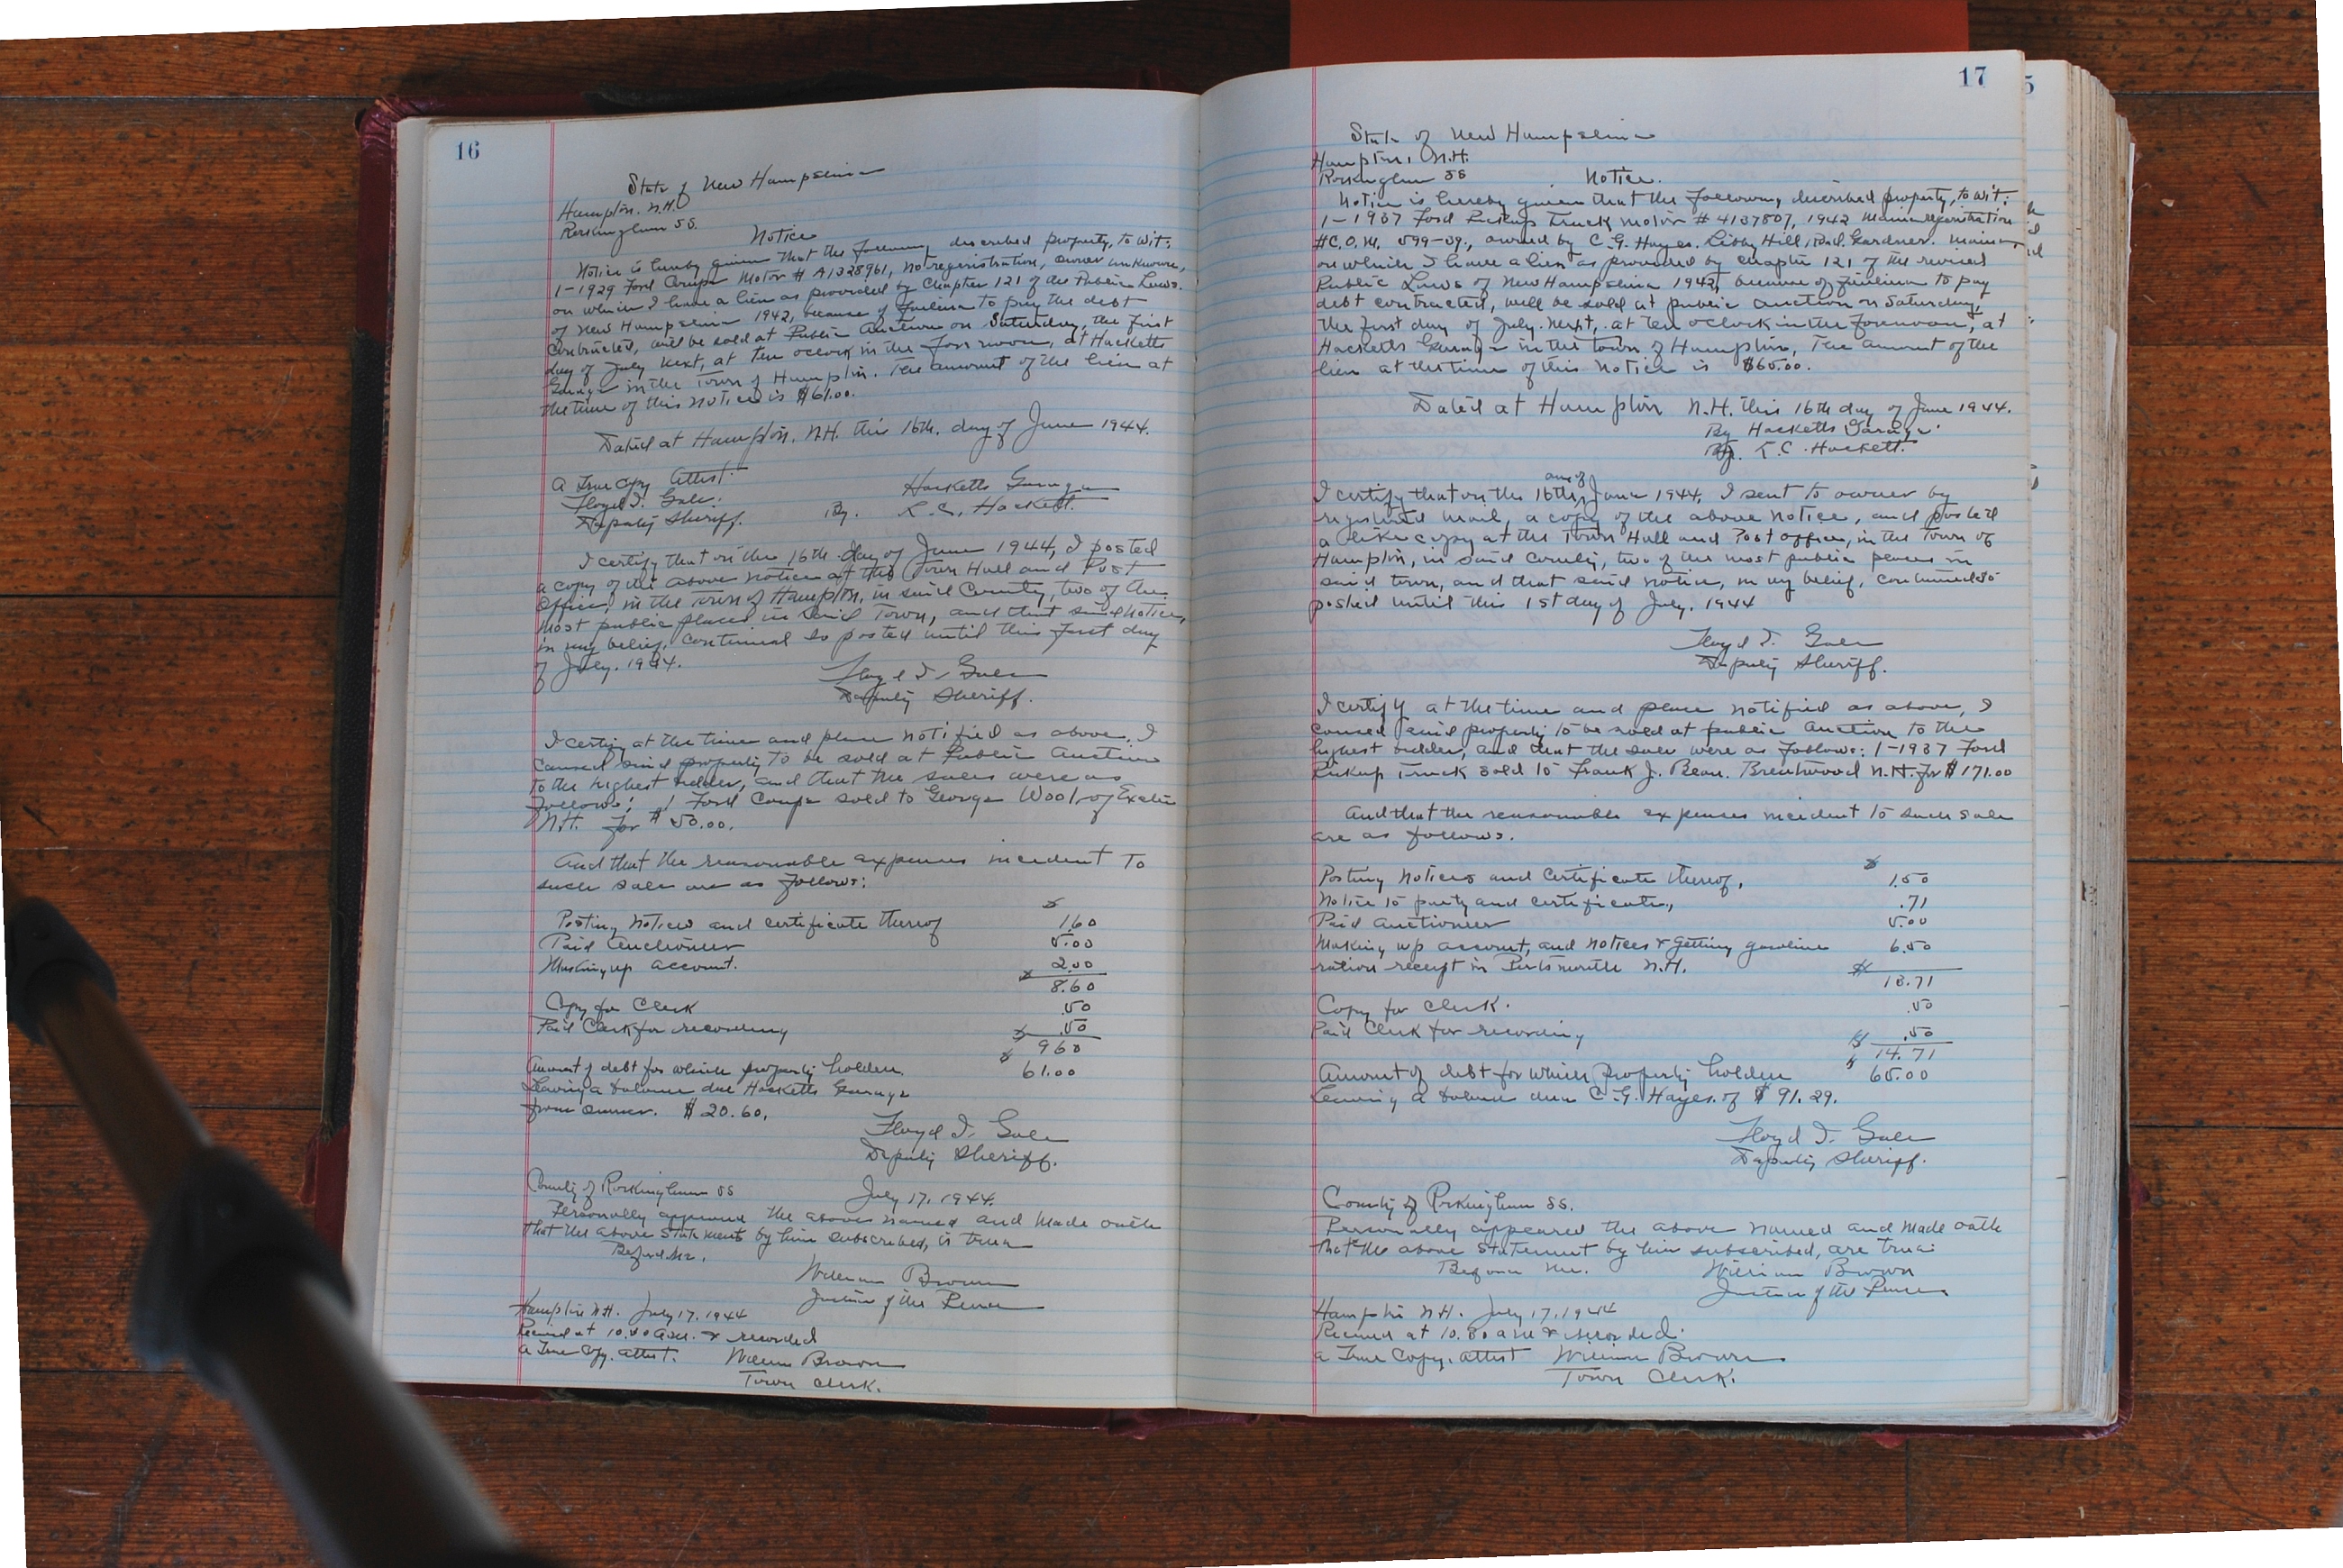 16
State of New Hampshire
Hampton. N.H.
Rockingham SS.
Notice
Notice is hereby given that the following described property, to wit:
1-1929 Ford Coupe Motor # A1328961, no registration, owner unknown,
on which I have a lien as provided by Chapter 121 of the Public Laws.
of New Hampshire 1942, because of failure to pay the debt
contracted, will be sold at Public Auction on Saturday, the first
day of July next, at ten oclock in the forenoon, at Hacketts
Garage in the Town of Hampton. The amount of the lien at
the time of this Notice is $61.00.
Dated at Hampton, N.H. this 16th. day of June 1944.
A True Copy Attest.
Floyd I. Gale.
Deputy Sheriff.
Hacketts Garage
By. R. C. Hackett.
I certify that on the 16th day of June 1944, I posted
a copy of the above notice at the Town Hall and Post
Office, in the Town of Hampton, in said County, two of the
most public places in said Town, and that said notice,
in my belief, continued so posted until this first day
of July. 1944.
Floyd I. Gale
Deputy Sheriff.
I certify at the time and place notified as above. I
caused said property to be sold at Public Auction
to the highest bidder, and that the sales were as
follows: 1 Ford Coupe sold to George Wool, of Exeter
N.H. for $50.00.
And that the reasonable expenses incident to
such sale are as follows:
Posting notices and certificate thereof $ 1.60
Paid Auctioneer 5.00
Making up account. 2.00
$ 8.60
Copy for Clerk .50
Paid Clerk for recording .50
$ 9.60
Amount of debt for which property holden. $ 61.00
Leaving a balance due Hacketts Garage
from owner. $20.60.
Floyd I. Gale
Deputy Sheriff.
County of Rockingham SS July 17, 1944.
Personally appeared the above named and made oath
that the above statements by him subscribed, is true
Before Me.
William Brown
Justice of the Peace
Hampton N.H. July 17, 1944
Received at 10.30 a.m. & recorded
a True Copy, attest. William Brown
Town Clerk.
17
State of New Hampshire
Hampton, N.H.
Rockingham SS
Notice.
Notice is hereby given that the following described property, to wit:
1-1937 Ford Pickup Truck motor # 4137807, 1942 Maine registration
#C.O.M. 599-39., owned by C.G. Hayes. Libby Hill, Road. Gardner. Maine
on which I have a lien as provided by chapter 121 of the revised
Public Laws of New Hampshire 1942, because of failure to pay
debt contracted, will be sold at public auction on Saturday,
the first day of July. next, at ten oclock in the forenoon, at
Hacketts Garage in the town of Hampton, The amount of the
lien at the time of this notice is $65.00.
Dated at Hampton N.H. this 16th day of June 1944.
By Hacketts Garage.
By. R. C. Hackett.
I certify that on the 16th, day of June 1944, I sent to owner by
registered mail, a copy of the above notice, and posted
a like copy at the Town Hall and Post office, in the Town of
Hampton, in said County, two of the most public places in
said town, and that said notice, in my belief, continued so
posted until this 1st day of July, 1944
Floyd I. Gale
Deputy Sheriff.
I certify at the time and place notified as above, I
caused said property to be sold at public Auction to the
highest bidder, and that the sales were as follows: 1-1937 Ford
Pickup Truck sold to Frank J. Bean. Brentwood N.H. for $171.00
And that the reasonable expenses incident to such sale
are as follows.
Posting Notices and Certificate thereof, $ 1.50
Notice to party and certificate, .71
Paid Auctioneer 5.00
Making up account, and notices & getting gasoline 6.50
ration receipt in Portsmouth N.H. $ 13.71
Copy for clerk. .50
Paid Clerk for recording .50
$ 14.71
Amount of debt for which property holden $ 65.00
Leaving a balance due C.G. Hayes. of $91.29.
Floyd I. Gale
Deputy Sheriff.
County of Rockingham SS.
Personally appeared the above named and made oath
that the above statement by him subscribed, are true.
Before me. William Brown
Justice of the Peace
Hampton N.H. July 17, 1944
Received at 10.30 a.m & recorded.
a True Copy. attest William Brown
Town Clerk.